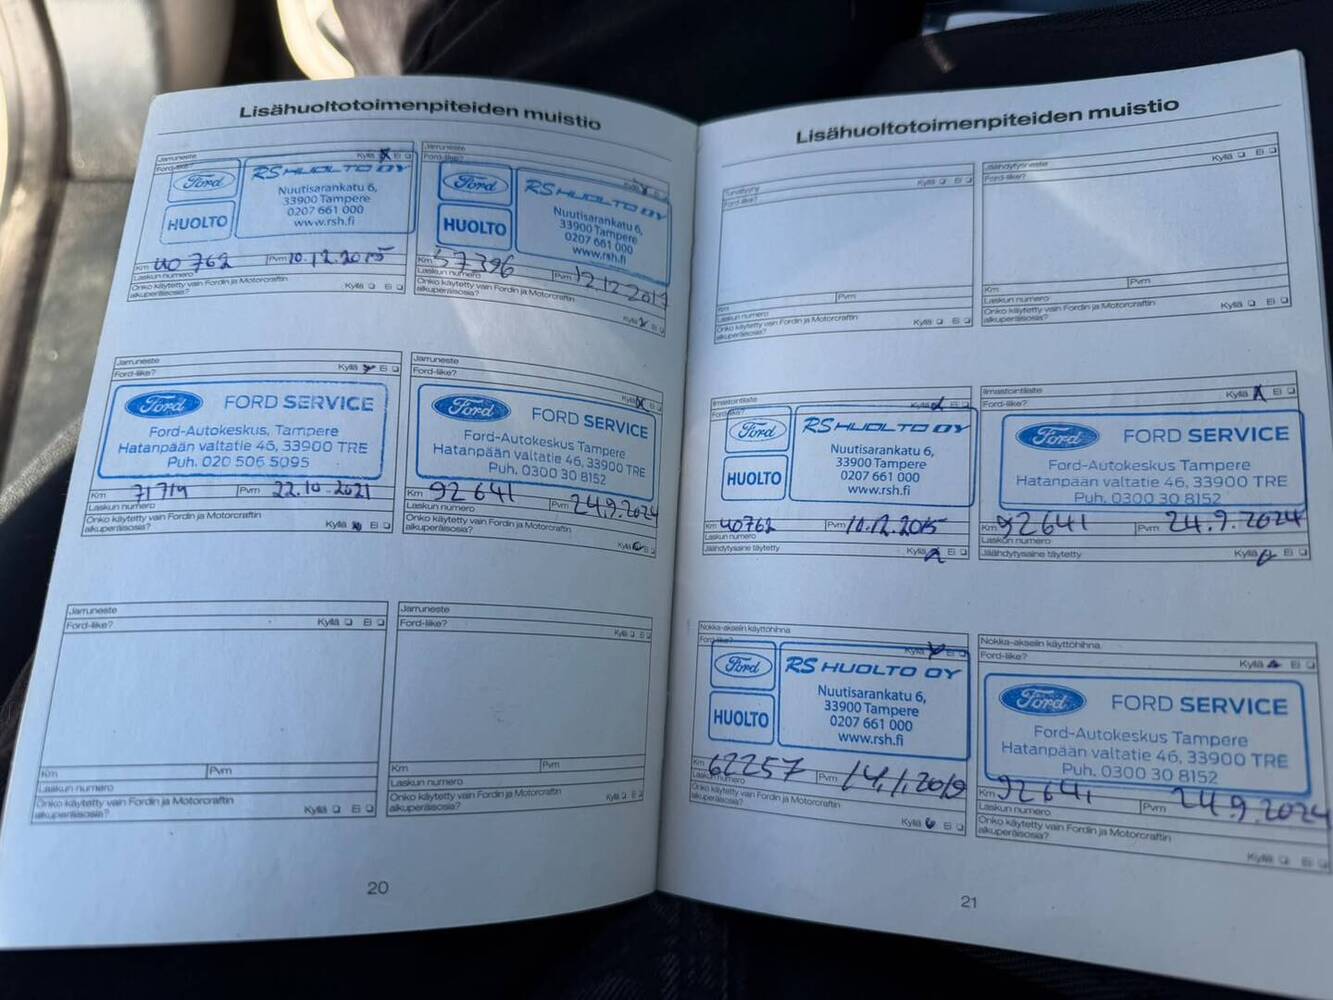 Lisähuoltotoimenpiteiden muistio
Jarruneste
Ford-liike? Kyllä Ei
Ford
HUOLTO
RS HUOLTO OY
Nuutisarankatu 6,
33900 Tampere
0207 661 000
www.rsh.fi
Km 40 762 Pvm 10.12.2015
Laskun numero
Onko käytetty vain Fordin ja Motorcraftin
alkuperäisosia? Kyllä Ei
Jarruneste
Ford
HUOLTO
RS HUOLTO OY
Nuutisarankatu 6,
33900 Tampere
0207 661 000
www.rsh.fi
Km 57396 Pvm 12.12.
Laskun numero
Onko käytetty vain Fordin ja Motorcraftin
alkuperäisosia?
Kyllä Ei
Jarruneste
Ford-liike? Kyllä Ei
Ford FORD SERVICE
Ford-Autokeskus, Tampere
Hatanpään valtatie 46, 33900 TRE
Puh. 020 506 5095
Km 71719 Pvm 22.10.2021
Laskun numero
Onko käytetty vain Fordin ja Motorcraftin
alkuperäisosia? Kyllä Ei
Jarruneste
Ford-liike?
Kyllä Ei
Ford FORD SERVICE
Ford-Autokeskus Tampere
Hatanpään valtatie 46, 33900 TRE
Puh. 0300 30 8152
Km 92641 Pvm 24.9.2024
Laskun numero
Onko käytetty vain Fordin ja Motorcraftin
alkuperäisosia?
Kyllä Ei
Jarruneste
Ford-liike? Kyllä Ei
Km Pvm
Laskun numero
Onko käytetty vain Fordin ja Motorcraftin
alkuperäisosia? Kyllä Ei
Jarruneste
Ford-liike? Kyllä Ei
Km Pvm
Laskun numero
Onko käytetty vain Fordin ja Motorcraftin
alkuperäisosia? Kyllä Ei
20
Lisähuoltotoimenpiteiden muistio
Kyllä Ei
Ford-liike?
Km Pvm
Laskun numero
Onko käytetty vain Fordin ja Motorcraftin
alkuperäisosia? Kyllä Ei
Jäähdytysneste
Ford-liike? Kyllä Ei
Km Pvm
Laskun numero
Onko käytetty vain Fordin ja Motorcraftin
alkuperäisosia? Kyllä Ei
Ilmastointilaite
Ford-liike? Kyllä Ei
Ford
HUOLTO
RS HUOLTO OY
Nuutisarankatu 6,
33900 Tampere
0207 661 000
www.rsh.fi
Km 40762 Pvm 10.12.2015
Laskun numero
Jäähdytysaine täytetty Kyllä Ei
Ilmastointilaite
Ford-liike? Kyllä Ei
Ford FORD SERVICE
Ford-Autokeskus Tampere
Hatanpään valtatie 46, 33900 TRE
Puh. 0300 30 8152
Km 92641 Pvm 24.9.2024
Laskun numero
Jäähdytysaine täytetty Kyllä Ei
Nokka-akselin käyttöhihna
Ford-liike? Kyllä Ei
Ford
HUOLTO
RS HUOLTO OY
Nuutisarankatu 6,
33900 Tampere
0207 661 000
www.rsh.fi
Km 62257 Pvm 14.1.2019
Laskun numero
Onko käytetty vain Fordin ja Motorcraftin
alkuperäisosia?
Kyllä Ei
Nokka-akselin käyttöhihna
Ford-liike? Kyllä Ei
Ford FORD SERVICE
Ford-Autokeskus Tampere
Hatanpään valtatie 46, 33900 TRE
Puh. 0300 30 8152
Km 92641 Pvm 24.9.2024
Laskun numero
Onko käytetty vain Fordin ja Motorcraftin
alkuperäisosia?
Kyllä Ei
21